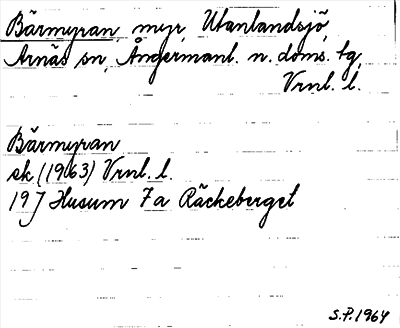 Bärmyran, myr, Utanlandsjö,
Arnäs sn, Ångermanl. n. doms. tg,
Vrnl. l.
Bärmyran
ek (1963) Vrnl. l.
19 J Husum 7a Räckeberget
S.P. 1964